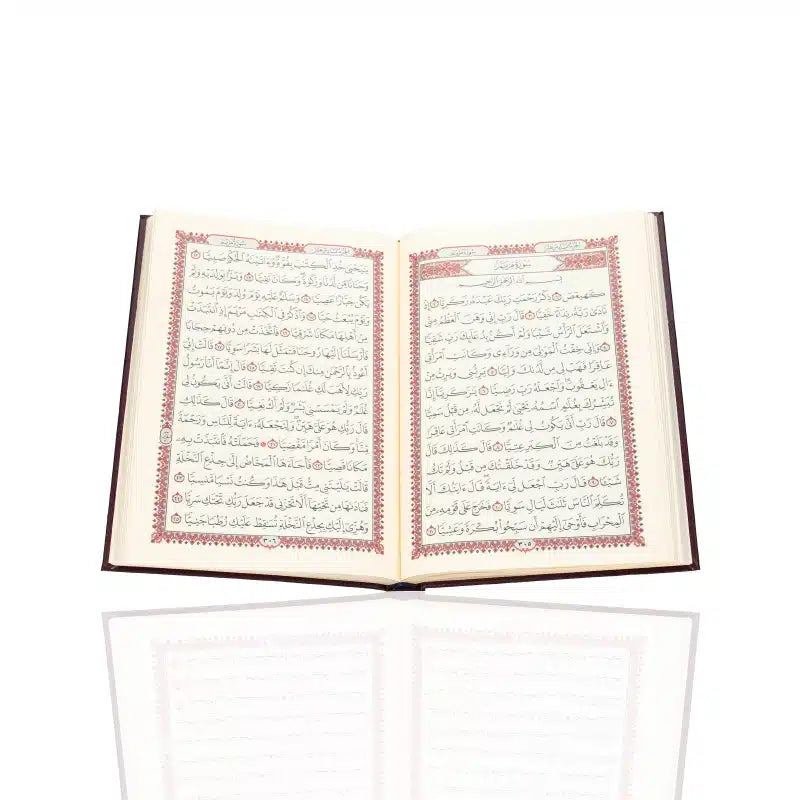 الجزء السادس عشر
سورة مريم
سُورَةُ مَرْيَمَ
بِسْمِ ٱللَّهِ ٱلرَّحْمَٰنِ ٱلرَّحِيمِ
كٓهيعٓصٓ ١ ذِكْرُ رَحْمَتِ رَبِّكَ عَبْدَهُۥ زَكَرِيَّآ ٢ إِذْ
نَادَىٰ رَبَّهُۥ نِدَآءً خَفِيًّا ٣ قَالَ رَبِّ إِنِّي وَهَنَ ٱلْعَظْمُ مِنِّي
وَٱشْتَعَلَ ٱلرَّأْسُ شَيْبًا وَلَمْ أَكُنۢ بِدُعَآئِكَ رَبِّ شَقِيًّا
٤ وَإِنِّي خِفْتُ ٱلْمَوَٰلِيَ مِن وَرَآءِي وَكَانَتِ ٱمْرَأَتِي
عَاقِرًا فَهَبْ لِي مِن لَّدُنكَ وَلِيًّا ٥ يَرِثُنِي وَيَرِثُ مِنْ
ءَالِ يَعْقُوبَ وَٱجْعَلْهُ رَبِّ رَضِيًّا ٦ يَٰزَكَرِيَّآ إِنَّا
نُبَشِّرُكَ بِغُلَٰمٍ ٱسْمُهُۥ يَحْيَىٰ لَمْ نَجْعَل لَّهُۥ مِن قَبْلُ سَمِيًّا
٧ قَالَ رَبِّ أَنَّىٰ يَكُونُ لِي غُلَٰمٌ وَكَانَتِ ٱمْرَأَتِي عَاقِرًا
وَقَدْ بَلَغْتُ مِنَ ٱلْكِبَرِ عِتِيًّا ٨ قَالَ كَذَٰلِكَ قَالَ
رَبُّكَ هُوَ عَلَيَّ هَيِّنٌ وَقَدْ خَلَقْتُكَ مِن قَبْلُ وَلَمْ تَكُ
شَيْـًٔا ٩ قَالَ رَبِّ ٱجْعَل لِّيٓ ءَايَةً قَالَ ءَايَتُكَ أَلَّا
تُكَلِّمَ ٱلنَّاسَ ثَلَٰثَ لَيَالٍ سَوِيًّا ١٠ فَخَرَجَ عَلَىٰ قَوْمِهِۦ مِنَ
ٱلْمِحْرَابِ فَأَوْحَىٰٓ إِلَيْهِمْ أَن سَبِّحُوا۟ بُكْرَةً وَعَشِيًّا ١١
٣٠٥
الجزء السادس عشر
سورة مريم
يَٰيَحْيَىٰ خُذِ ٱلْكِتَٰبَ بِقُوَّةٍ وَءَاتَيْنَٰهُ ٱلْحُكْمَ صَبِيًّا ١٢
وَحَنَانًا مِّن لَّدُنَّا وَزَكَوٰةً وَكَانَ تَقِيًّا ١٣ وَبَرًّۢا بِوَٰلِدَيْهِ وَلَمْ
يَكُن جَبَّارًا عَصِيًّا ١٤ وَسَلَٰمٌ عَلَيْهِ يَوْمَ وُلِدَ وَيَوْمَ يَمُوتُ
وَيَوْمَ يُبْعَثُ حَيًّا ١٥ وَٱذْكُرْ فِي ٱلْكِتَٰبِ مَرْيَمَ إِذِ ٱنتَبَذَتْ
مِنْ أَهْلِهَا مَكَانًا شَرْقِيًّا ١٦ فَٱتَّخَذَتْ مِن دُونِهِمْ حِجَابًا
فَأَرْسَلْنَآ إِلَيْهَا رُوحَنَا فَتَمَثَّلَ لَهَا بَشَرًا سَوِيًّا ١٧ قَالَتْ إِنِّيٓ
أَعُوذُ بِٱلرَّحْمَٰنِ مِنكَ إِن كُنتَ تَقِيًّا ١٨ قَالَ إِنَّمَآ أَنَا۠ رَسُولُ
رَبِّكِ لِأَهَبَ لَكِ غُلَٰمًا زَكِيًّا ١٩ قَالَتْ أَنَّىٰ يَكُونُ لِي
غُلَٰمٌ وَلَمْ يَمْسَسْنِي بَشَرٌ وَلَمْ أَكُ بَغِيًّا ٢٠ قَالَ كَذَٰلِكِ
قَالَ رَبُّكِ هُوَ عَلَيَّ هَيِّنٌ وَلِنَجْعَلَهُۥٓ ءَايَةً لِّلنَّاسِ وَرَحْمَةً
مِّنَّا وَكَانَ أَمْرًا مَّقْضِيًّا ٢١ فَحَمَلَتْهُ فَٱنتَبَذَتْ بِهِۦ
مَكَانًا قَصِيًّا ٢٢ فَأَجَآءَهَا ٱلْمَخَاضُ إِلَىٰ جِذْعِ ٱلنَّخْلَةِ
قَالَتْ يَٰلَيْتَنِي مِتُّ قَبْلَ هَٰذَا وَكُنتُ نَسْيًا مَّنسِيًّا ٢٣
فَنَادَىٰهَا مِن تَحْتِهَآ أَلَّا تَحْزَنِي قَدْ جَعَلَ رَبُّكِ تَحْتَكِ سَرِيًّا ٢٤
وَهُزِّيٓ إِلَيْكِ بِجِذْعِ ٱلنَّخْلَةِ تُسَٰقِطْ عَلَيْكِ رُطَبًا جَنِيًّا ٢٥
٣٠٦